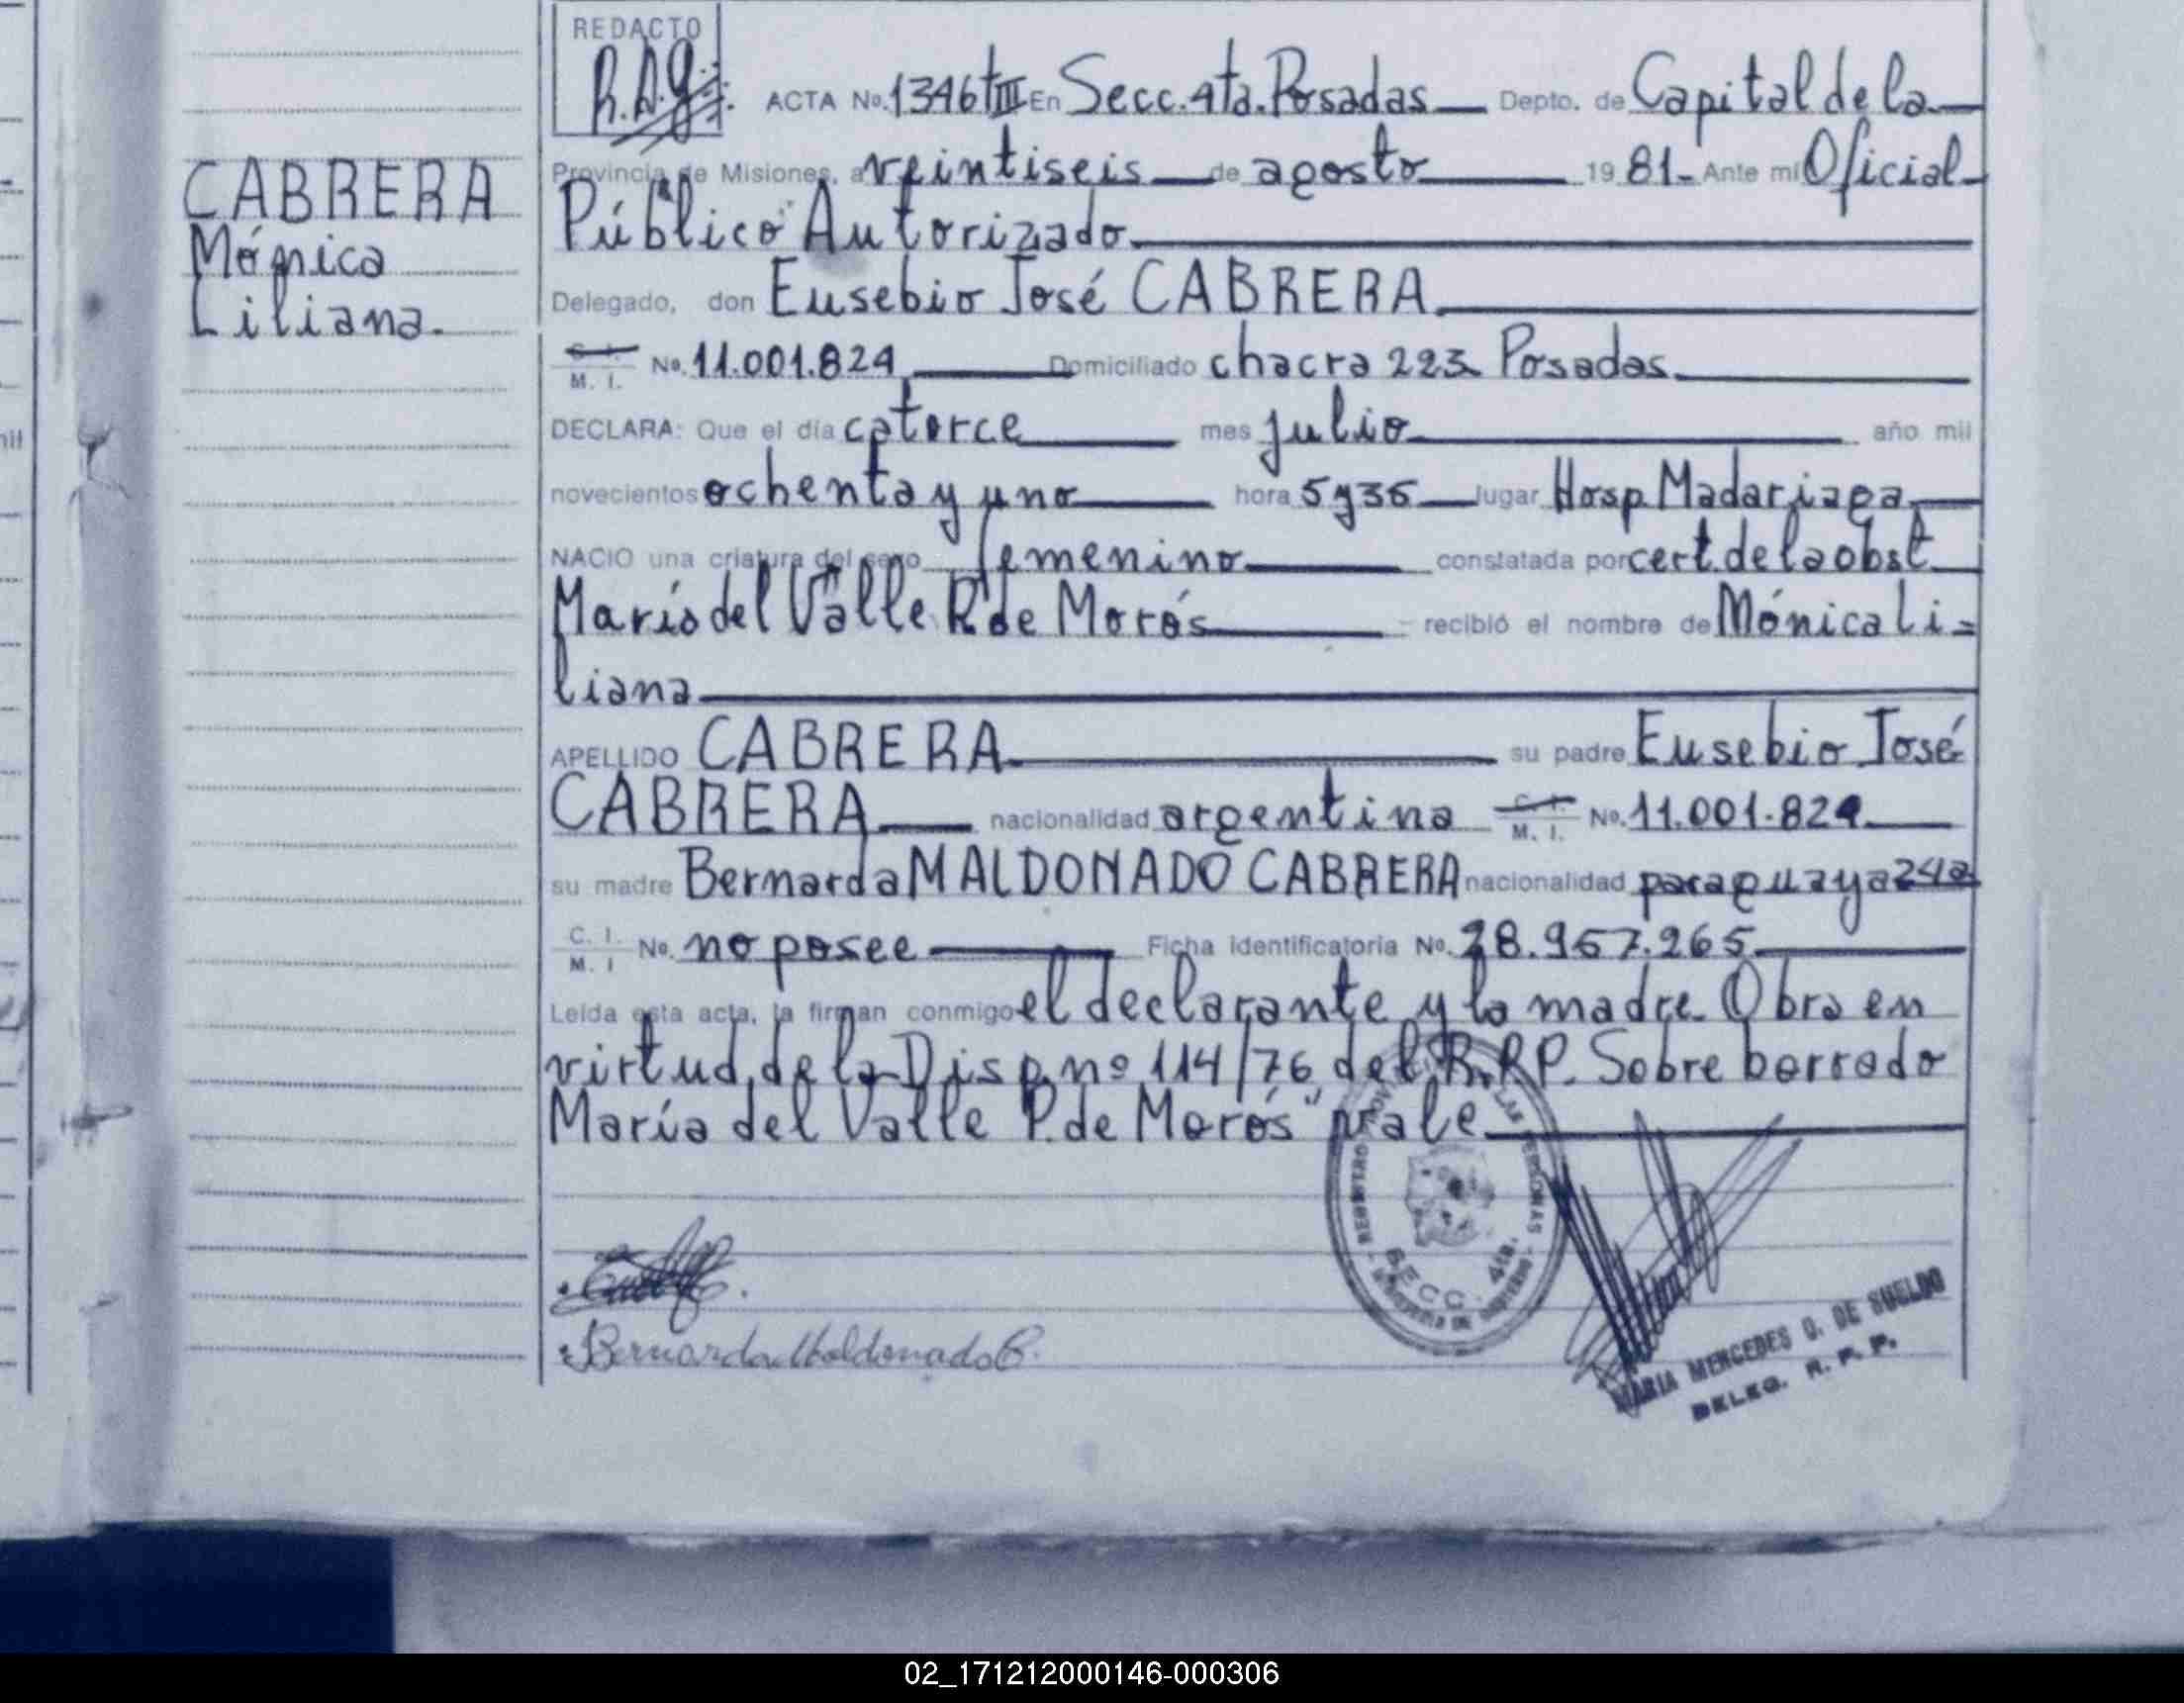 REDACTO
R.A.G.
ACTA No. 1346 tIII En Secc. 4ta. Posadas Depto. de Capital de la
CABRERA
Mónica
Liliana.
Provincia de Misiones, a veintiseis de agosto 1981 - Ante mí Oficial
Público Autorizado.
Delegado, don Eusebio José CABRERA.
C. I.
M. I. No. 11.001.824 Domiciliado chacra 223 Posadas.
DECLARA: Que el día catorce mes julio año mil
novecientos ochenta y uno hora 5 y 35 lugar Hosp. Madariaga
NACIO una criatura del sexo femenino constatada por cert. de la obst.
"María del Valle P. de Morós recibió el nombre de Mónica Li=
liana
APELLIDO CABRERA su padre Eusebio José
CABRERA nacionalidad argentina C. I. M. I. No. 11.001.824
su madre Bernarda MALDONADO CABRERA nacionalidad paraguaya 24a
C. I.
M. I No. no posee Ficha identificatoria No. 28.957.265
Leída esta acta, la firman conmigo el declarante y la madre. Obra en
virtud de la Disp. nº 114/76 del R.P.P. Sobre borrado
María del Valle P. de Morós" vale
SECC. 4ta.
Bernarda Maldonado C.
MARIA MERCEDES Q. DE SUELDO
DELEG. R. P. P.
02_171212000146-000306